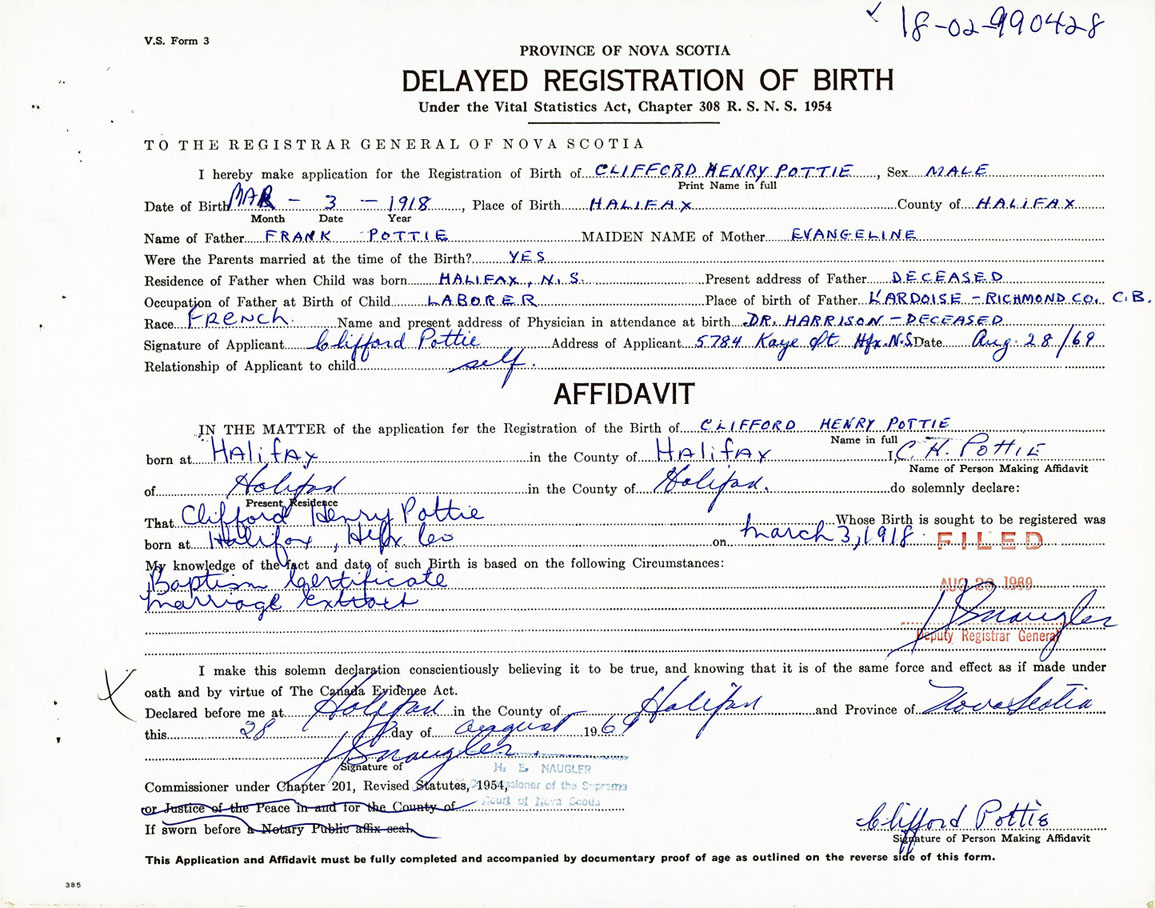 ✓ 18-02-990428
V.S. Form 3
PROVINCE OF NOVA SCOTIA
DELAYED REGISTRATION OF BIRTH
Under the Vital Statistics Act, Chapter 308 R. S. N. S. 1954
TO THE REGISTRAR GENERAL OF NOVA SCOTIA
I hereby make application for the Registration of Birth of CLIFFORD HENRY POTTIE, Sex MALE
Print Name in full
Date of Birth MAR - 3 - 1918, Place of Birth HALIFAX County of HALIFAX
Month Date Year
Name of Father FRANK POTTIE MAIDEN NAME of Mother EVANGELINE
Were the Parents married at the time of the Birth? YES
Residence of Father when Child was born HALIFAX, N.S. Present address of Father DECEASED
Occupation of Father at Birth of Child LABORER Place of birth of Father L'ARDOISE - RICHMOND CO. C.B.
Race FRENCH. Name and present address of Physician in attendance at birth DR. HARRISON - DECEASED
Signature of Applicant Clifford Pottie Address of Applicant 5784 Kaye St Hfx. N.S Date Aug. 28/69
Relationship of Applicant to child self.
AFFIDAVIT
IN THE MATTER of the application for the Registration of the Birth of CLIFFORD HENRY POTTIE
Name in full
born at Halifax in the County of Halifax I, C. H. Pottie
Name of Person Making Affidavit
of Halifax in the County of Halifax. do solemnly declare:
Present Residence
That Clifford Henry Pottie Whose Birth is sought to be registered was
born at Halifax, Hfx Co on March 3, 1918
FILED
My knowledge of the fact and date of such Birth is based on the following Circumstances:
Baptism Certificate AUG 1969
Marriage Extract
Naugler
Deputy Registrar General
I make this solemn declaration conscientiously believing it to be true, and knowing that it is of the same force and effect as if made under
oath and by virtue of The Canada Evidence Act.
Declared before me at Halifax in the County of Halifax and Province of Nova Scotia
this 28 day of August 1969
Naugler
Signature of H. E. NAUGLER
Commissioner under Chapter 201, Revised Statutes, 1954, Commissioner of the Supreme
or Justice of the Peace in and for the County of Court of Nova Scotia
If sworn before a Notary Public affix seal. Clifford Pottie
Signature of Person Making Affidavit
This Application and Affidavit must be fully completed and accompanied by documentary proof of age as outlined on the reverse side of this form.
385